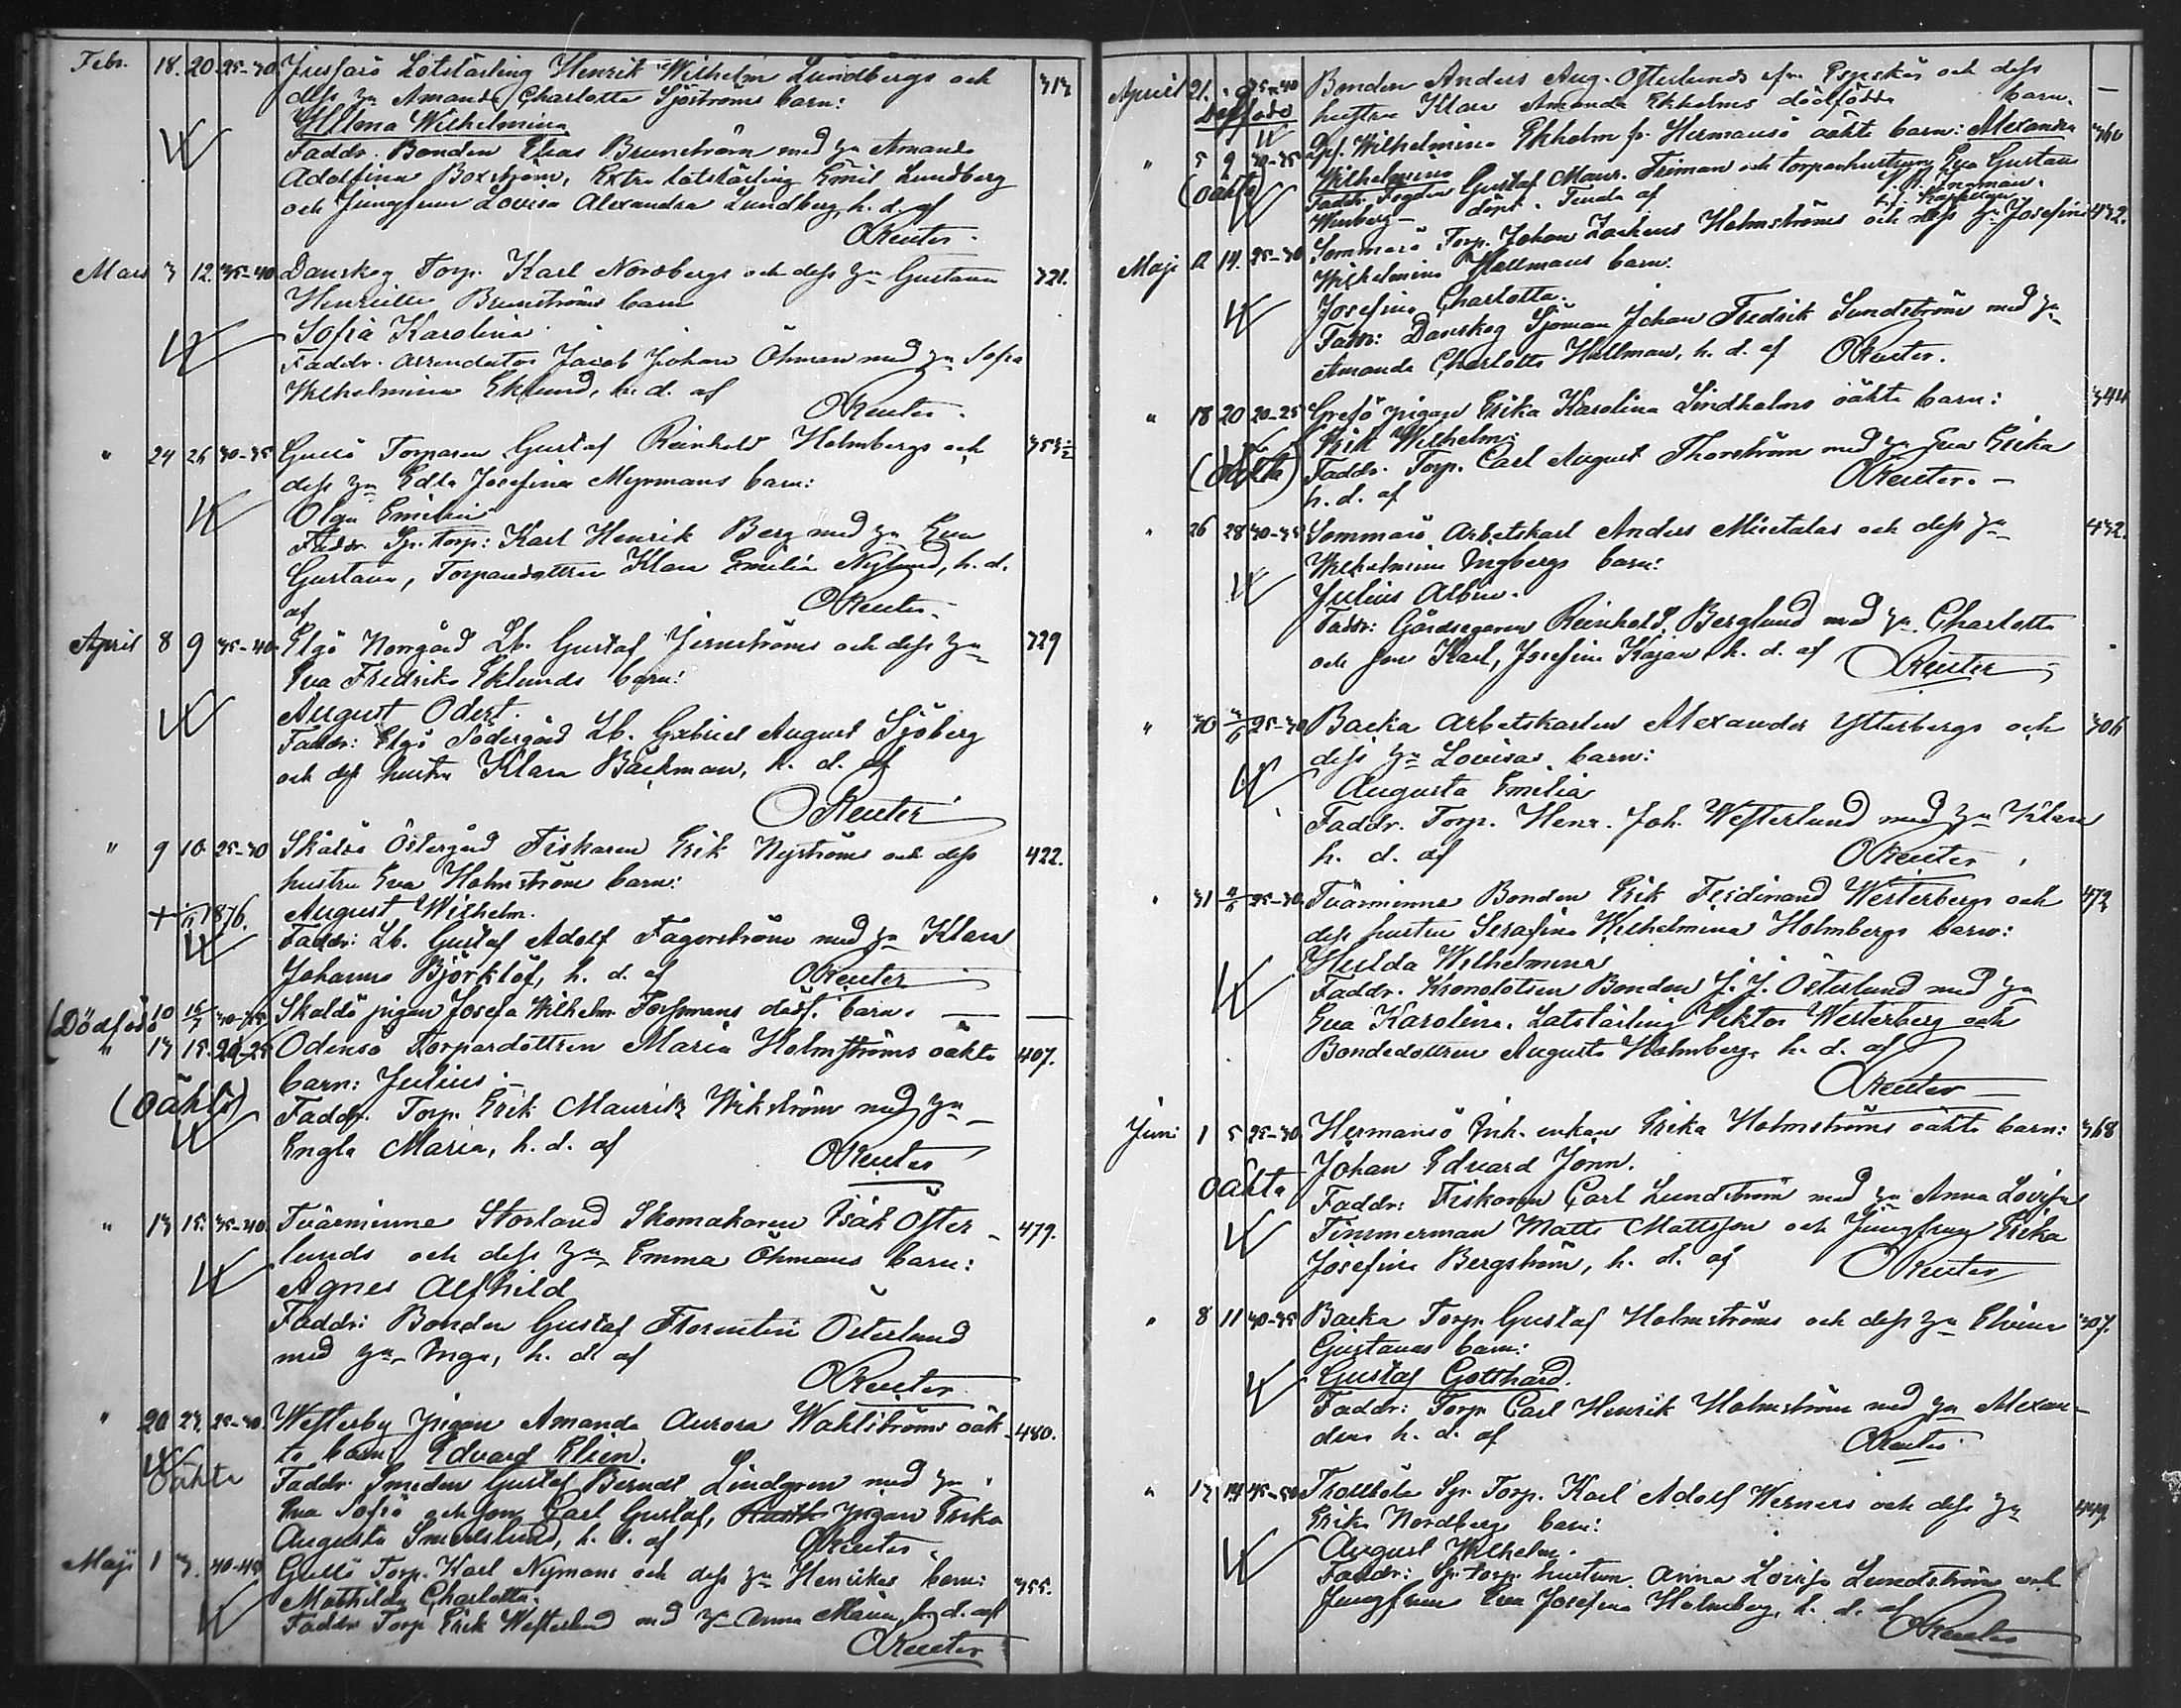 Febr. 18. 20. 25-30 Jussarö Lotslärling Henrik Wilhelm Lundbergs och 313
dess hu Amanda Charlotta Sjöströms barn:
Hilma Wilhelmina
Faddr. Bonden Elias Brunström med hu Amanda
Adolfina Boxström, Extra lotslärling Emil Lundberg
och Jungfrun Lovisa Alexandra Lundberg, h. d. af
OReuter.
Mars 3 12. 35-40 Danskog Torp. Karl Nordbergs och dess hu Gustava 321.
Henrietta Brunströms barn
Sofia Karolina
Faddr. Arrendator Jacob Johan Öhman med hu Sofia
Wilhelmina Eklund, h. d. af
OReuter.
" 24 26 30-35 Gullö Torparen Gustaf Reinhold Holmbergs och 353½
dess hu Edla Josefina Myrmans barn:
Olga Emilia
Faddr. Sp. torp: Karl Henrik Berg med hu Eva
Gustava, Torparedottren Klara Emilia Nylund, h. d.
af OReuter.
April 8 9 35-40 Elgö Norrgård Lb. Gustaf Jernströms och dess hu 329
Eva Fredrika Eklunds barn:
August Odert.
Faddr: Elgö Södergård Lb. Gabriel August Sjöberg
och dess hustru Klara Bäckman, h. d. af
OReuter
" 9 10. 25-30 Skåldö Östergård Fiskaren Erik Nyströms och dess 422.
hustru Eva Holmström barn:
1876. August Wilhelm.
Faddr: Lb. Gustaf Adolf Fagerström med hu Klara
Johanna Björklöf, h. d. af OReuter
(Dödfödd 10 Skåldö pigan Josefa Wilhelm. Forssmans dödf. barn. —
" 13 15. 20-25 Odensö Torpardottren Maria Holmströms oäkta 407.
barn: Julius.
(Oäkta) Faddr. Torp. Erik Mauritz Wikström med hu
Engla Maria, h. d. af OReuter
" 13 15. 35-40. Tvärminne Storland Skomakaren Isak Öster- 479.
lunds och dess hu Emma Öhmans barn:
Agnes Alfhild
Faddr: Bonden Gustaf Florentin Österlund
med hu Inga, h. d. af
OReuter
" 20 23. 25-30. Westerby pigan Amanda Aurora Wahlströms oäk- 480.
ta barn: Edvard Elien.
Oäkta Faddr. Smeden Gustaf Berndt Lindgren med hu
Eva Sofia och son Carl Gustaf, pigan Erika
Augusta Smedslund, h. d. af OReuter.
Maji 1 3. 40-45 Gullö Torp. Karl Nymans och dess hu Henrikas barn: 355.
Mathilda Charlotta.
Faddr Torp. Erik Westerlund med hu Anna Maria, h. d. af
OReuter
April 21. 35-40 Bonden Anders Aug. Österlunds från Espskär och dess —
Dödfödd hustru Klara Amanda Ekholms dödfödda barn.
" 5 9 30-35 Wilhelmina Ekholm fr. Hermansö oäkta barn: Alexandra 360
(Oäkta) Wilhelmina
Faddr. Fogden Gustaf Maur. Friman och torparehustrun Eva Gustava
Winberg — döpt. Tenala af
Maji 12 14. 25-30 Sommarö Torp. Johan Zacheus Holmströms och dess hu Josefina 432.
Wilhelmina Hallmans barn.
Josefina Charlotta.
Faddr: Danskog Sjöman Johan Fredrik Sundström med hu
Amanda Charlotta Hallman, h. d. af OReuter.
" 18 20 20-25 Grefö pigan Erika Karolina Lindholms oäkta barn: 344
Erik Wilhelm
(Oäkta) Faddr. Torp. Carl August Thorström med hu Eva Erika
h. d. af OReuter. —
" 26 28 30-35 Sommarö Arbetskarl Anders Miietalas och dess hu 432.
Wilhelmina Ingbergs barn:
Julius Albin.
Faddr: Gårdsegaren Reinhold Berglund med hu Charlotta
och son Karl, Josefina Kajan, h. d. af OReuter
" 30 25-30 Backa Arbetskarlen Alexander Ytterbergs och 306
dess hu Lovisas barn:
Augusta Emilia
Faddr. Torp. Henr. Joh. Westerlund med hu Klara
h. d. af OReuter
" 31 25-30. Tvärminne Bonden Erik Ferdinand Westerbergs och 473
dess hustru Serafina Wilhelmina Holmbergs barn:
Hulda Wilhelmina
Faddr. Kronolotsen Bonden J. J. Österlund med hu
Eva Karolina. Lotslärling Viktor Westerberg och
Bondedottren Augusta Holmberg, h. d. af
OReuter —
Juni 1 5 25-30. Hermansö Inh. enkan Erika Holmströms oäkta barn: 368
Johan Edvard Jonn.
Oäkta Faddr: Fiskaren Carl Lundström med hu Anna Lovisa
Timmerman Matts Mattsson och Jungfrun Erika
Josefina Bergström, h. d. af OReuter
" 8 11 30-35 Backa Torp. Gustaf Holmströms och dess hu Elvina 307.
Gustavas barn:
Gustaf Gotthard.
Faddr: Torp Carl Henrik Holmström med hu Alexan-
dra h. d. af OReuter
" 13 14 45-50 Trollböle Sp. Torp. Karl Adolf Werners och dess hu 449.
Erika Nordbergs barn:
August Wilhelm.
Faddr: Sp. torp. hustrun Anna Lovisa Lundström och
Jungfrun Eva Josefina Holmberg, h. d. af
OReuter